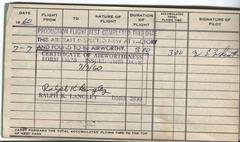 DATE
1960
FLIGHT
FROM
TO
NATURE OF
FLIGHT
DURATION
OF
FLIGHT
ACCUMULATED
TOTAL
FLYING TIME
SIGNATURE OF
PILOT
PRODUCTION FLIGHT TEST COMPLETED THIS DATE
THIS AIRCRAFT INSPECTED NEW AT FACTORY
7-7 AND FOUND TO BE AIRWORTHY.
CERTIFICATE OF AIRWORTHINESS
FORM ISSUED THIS DATE
7/7/60
Ralph K. Langley
RALPH K. LANGLEY
CARRY FORWARD THE TOTAL ACCUMULATED FLYING TIME TO THE TOP
OF NEXT PAGE